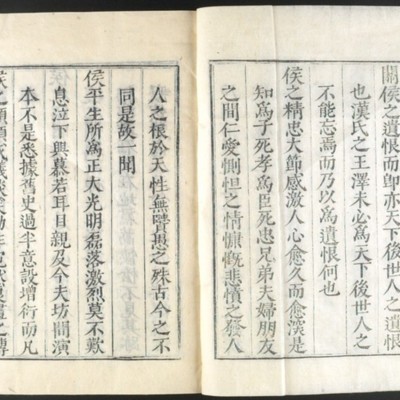 關侯之遺恨而卽亦天下後世人之遺恨
也漢氏之王澤未必爲天下後世人之
不能忘焉而乃以爲遺恨何也
侯之精忠大節感激人心愈久而愈深是
知爲子死孝爲臣死忠兄弟夫婦朋友
之間仁愛惻怛之情慷慨悲憤之發人
人之根於天性無賢愚之殊古今之不
同是故一聞
侯平生所爲正大光明磊落激烈莫不歎
息泣下興慕若耳目親及今夫坊間演
本不是悉據舊史過半意設增衍而凡